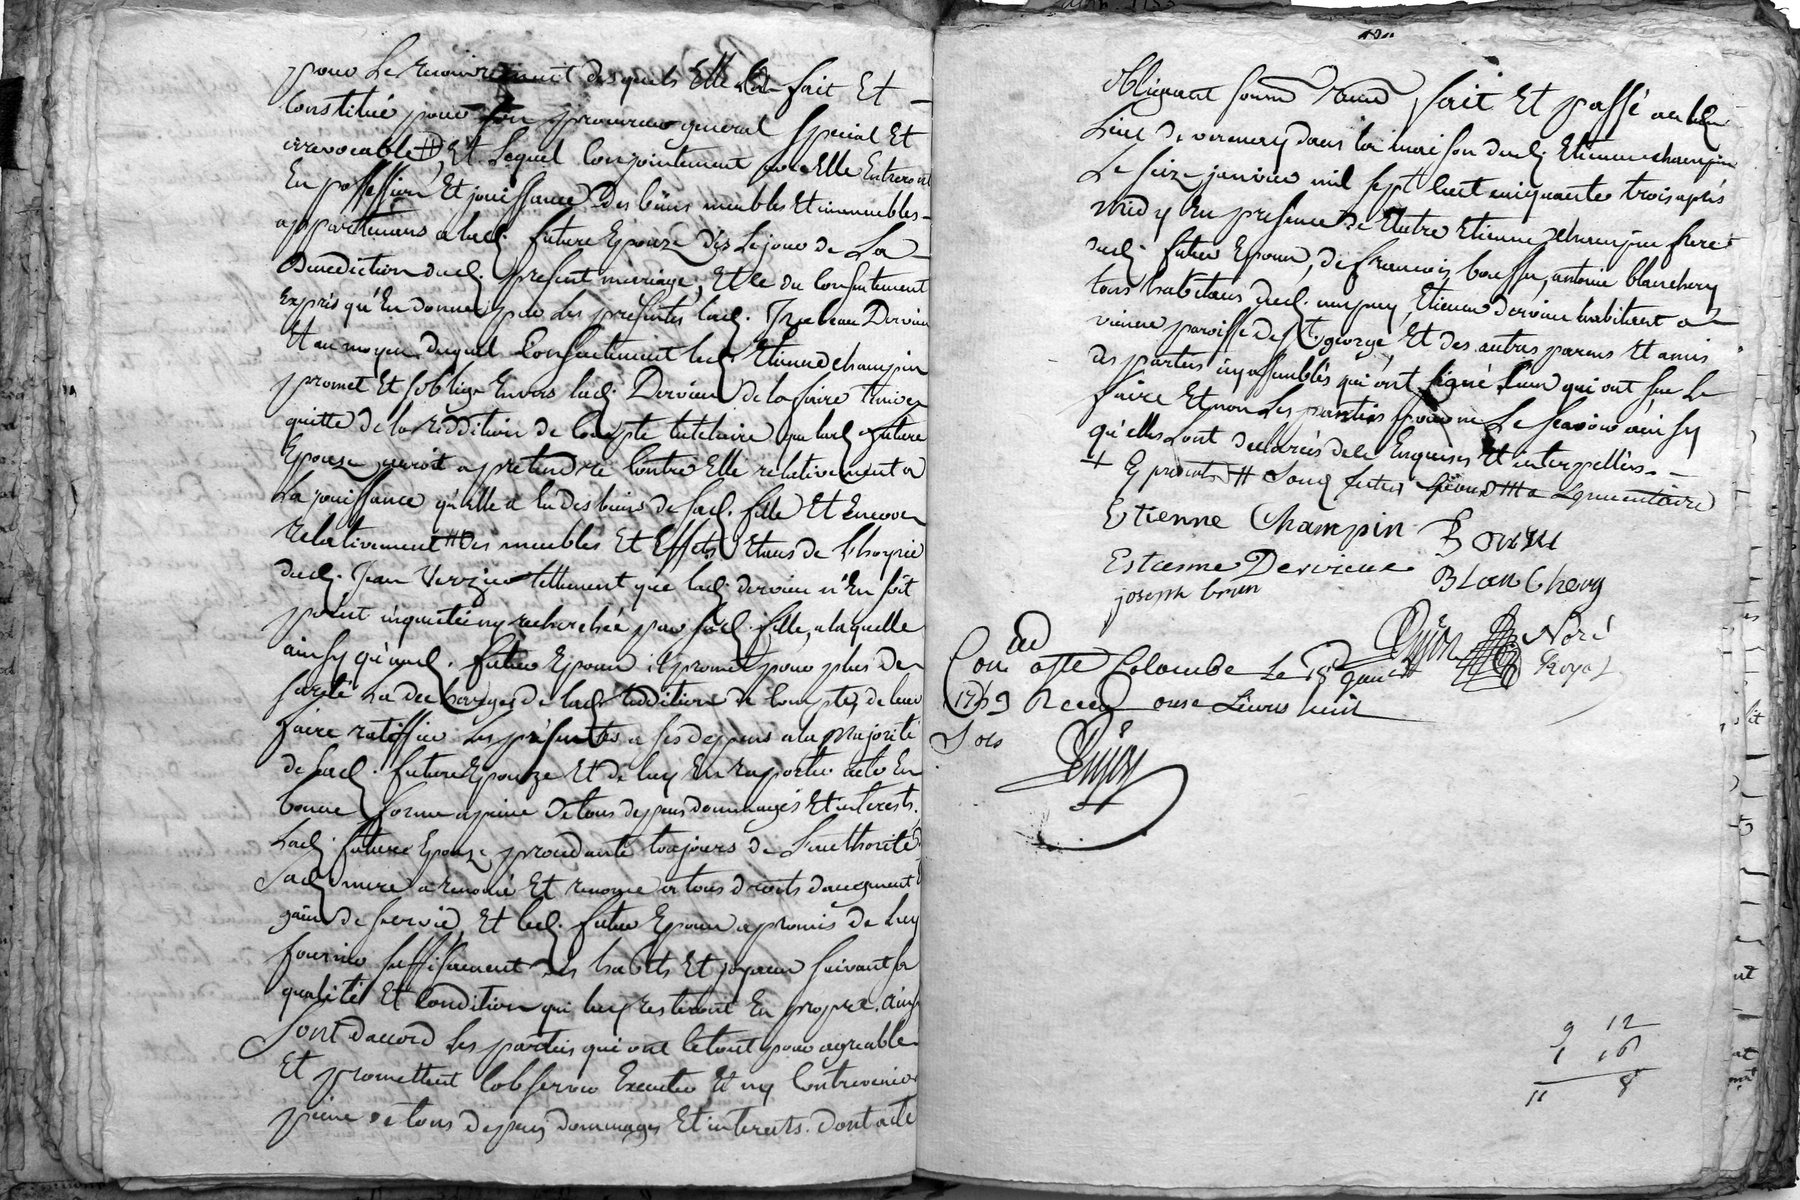 pour Le recouvrement desquels Elle l'a fait Et
Constitué pour son procureur general Special Et
irrevocable # Et Lequel Conjointement avec Elle Entreront
En possession Et jouissance Des biens meubles Et immeubles
appartenans a lad. future Epouze dès Le jour de La
Benediction dud. present mariage, Et ce du Consentement
Exprès qu'En donne par Les presentes lad. Dervieu
Et au moyen duquel Consentement led. Etienne champin
promet Et s'oblige Envers lad. Dervieu de la faire tenir
quitte de la reddition de Compte tutelaire que lad. future
Epouze auroit a pretendre Contre Elle relativement a
La jouissance qu'elle a Eu des biens de sad. fille Et Encore
relativement # des meubles Et Effets Etans de l'hoyrie
dud. Jean tellement que lad. dervieu n'En soit
point inquietée ny recherchée par sad. fille, a laquelle
ainsy qu'aud. futur Epoux il promet pour plus de
sureté de lad. reddition de Compte, de leur
faire ratiffier Les presentes a ses depens a la Majorité
de sad. future Epouze Et de luy En rapporter acte En
bonne forme a peine de tous depens dommages Et interests.
Lad. future Epouze procedante toujours de L'authorité de
Sad. mere a renoncé Et renonce a tous droits d'augment
gain de survie, Et led. futur Epoux a promis de luy
fournir suffisament des habits Et joyaux suivant sa
qualité Et Condition qui luy resteront En propre. Ainsy
Sont d'accord Les parties qui ont le tout pour agreable
Et promettent l'observer Executer Et n'y Contrevenir a
peine de tous depens dommages Et interests. Dont acte
obligeant soum renon fait Et passé aud.
Lieu de verenay dans la maison dud. Etienne champin
Le seize janvier mil sept cent cinquante trois après
midy En presence de autre Etienne champin frere
dud. futur Epoux, de francois bouffu, antoine blanchery
tous habitans dud. ampuy, Etienne dervieu habitant a
vienne paroisse de St. george Et des autres parens Et amis
des parties icy assemblés qui ont signé Ceux qui ont sçu Le
faire Et non Les parties pour ne Le sçavoir ainsy
qu'elles l'ont declaré de ce Enquises Et interpellées.
Etienne Champin
Estienne Dervieux Blan Chery
joseph
Dujon Noré Royal
Con a Ste Colombe le
1753 Receu onze Livres huit
Sols
Dujon
9 12
1 16
11 8